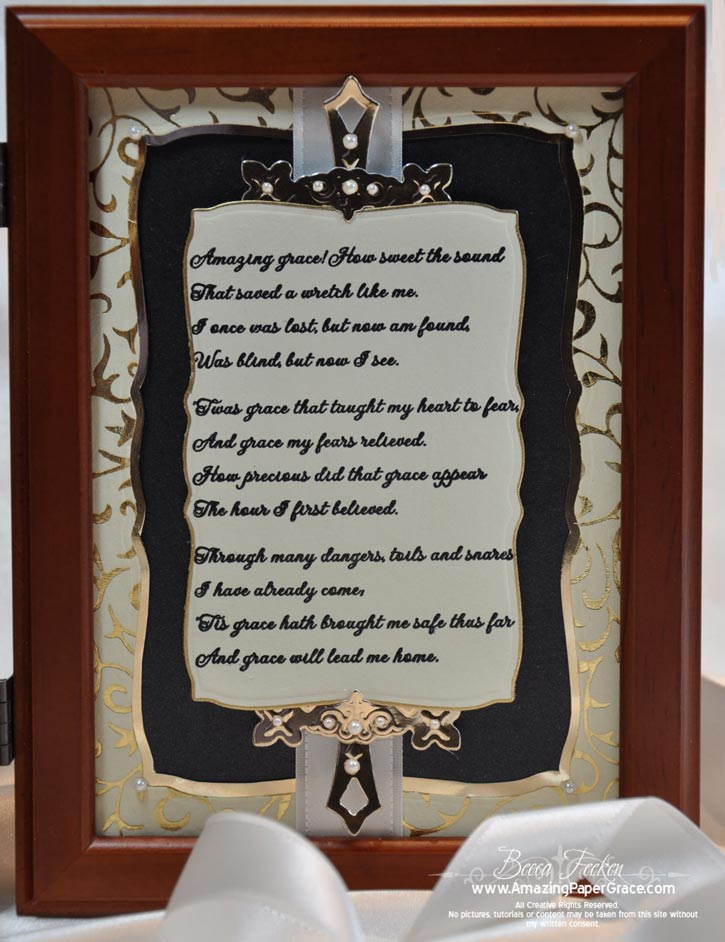 Amazing grace! How sweet the sound
That saved a wretch like me.
I once was lost, but now am found,
Was blind, but now I see.
'Twas grace that taught my heart to fear,
And grace my fears relieved.
How precious did that grace appear
The hour I first believed.
Through many dangers, toils and snares
I have already come;
'Tis grace hath brought me safe thus far
And grace will lead me home.
Becca Feeken
www.AmazingPaperGrace.com
All Creative Rights Reserved.
No pictures, tutorials or content may be taken from this site without
my written consent.